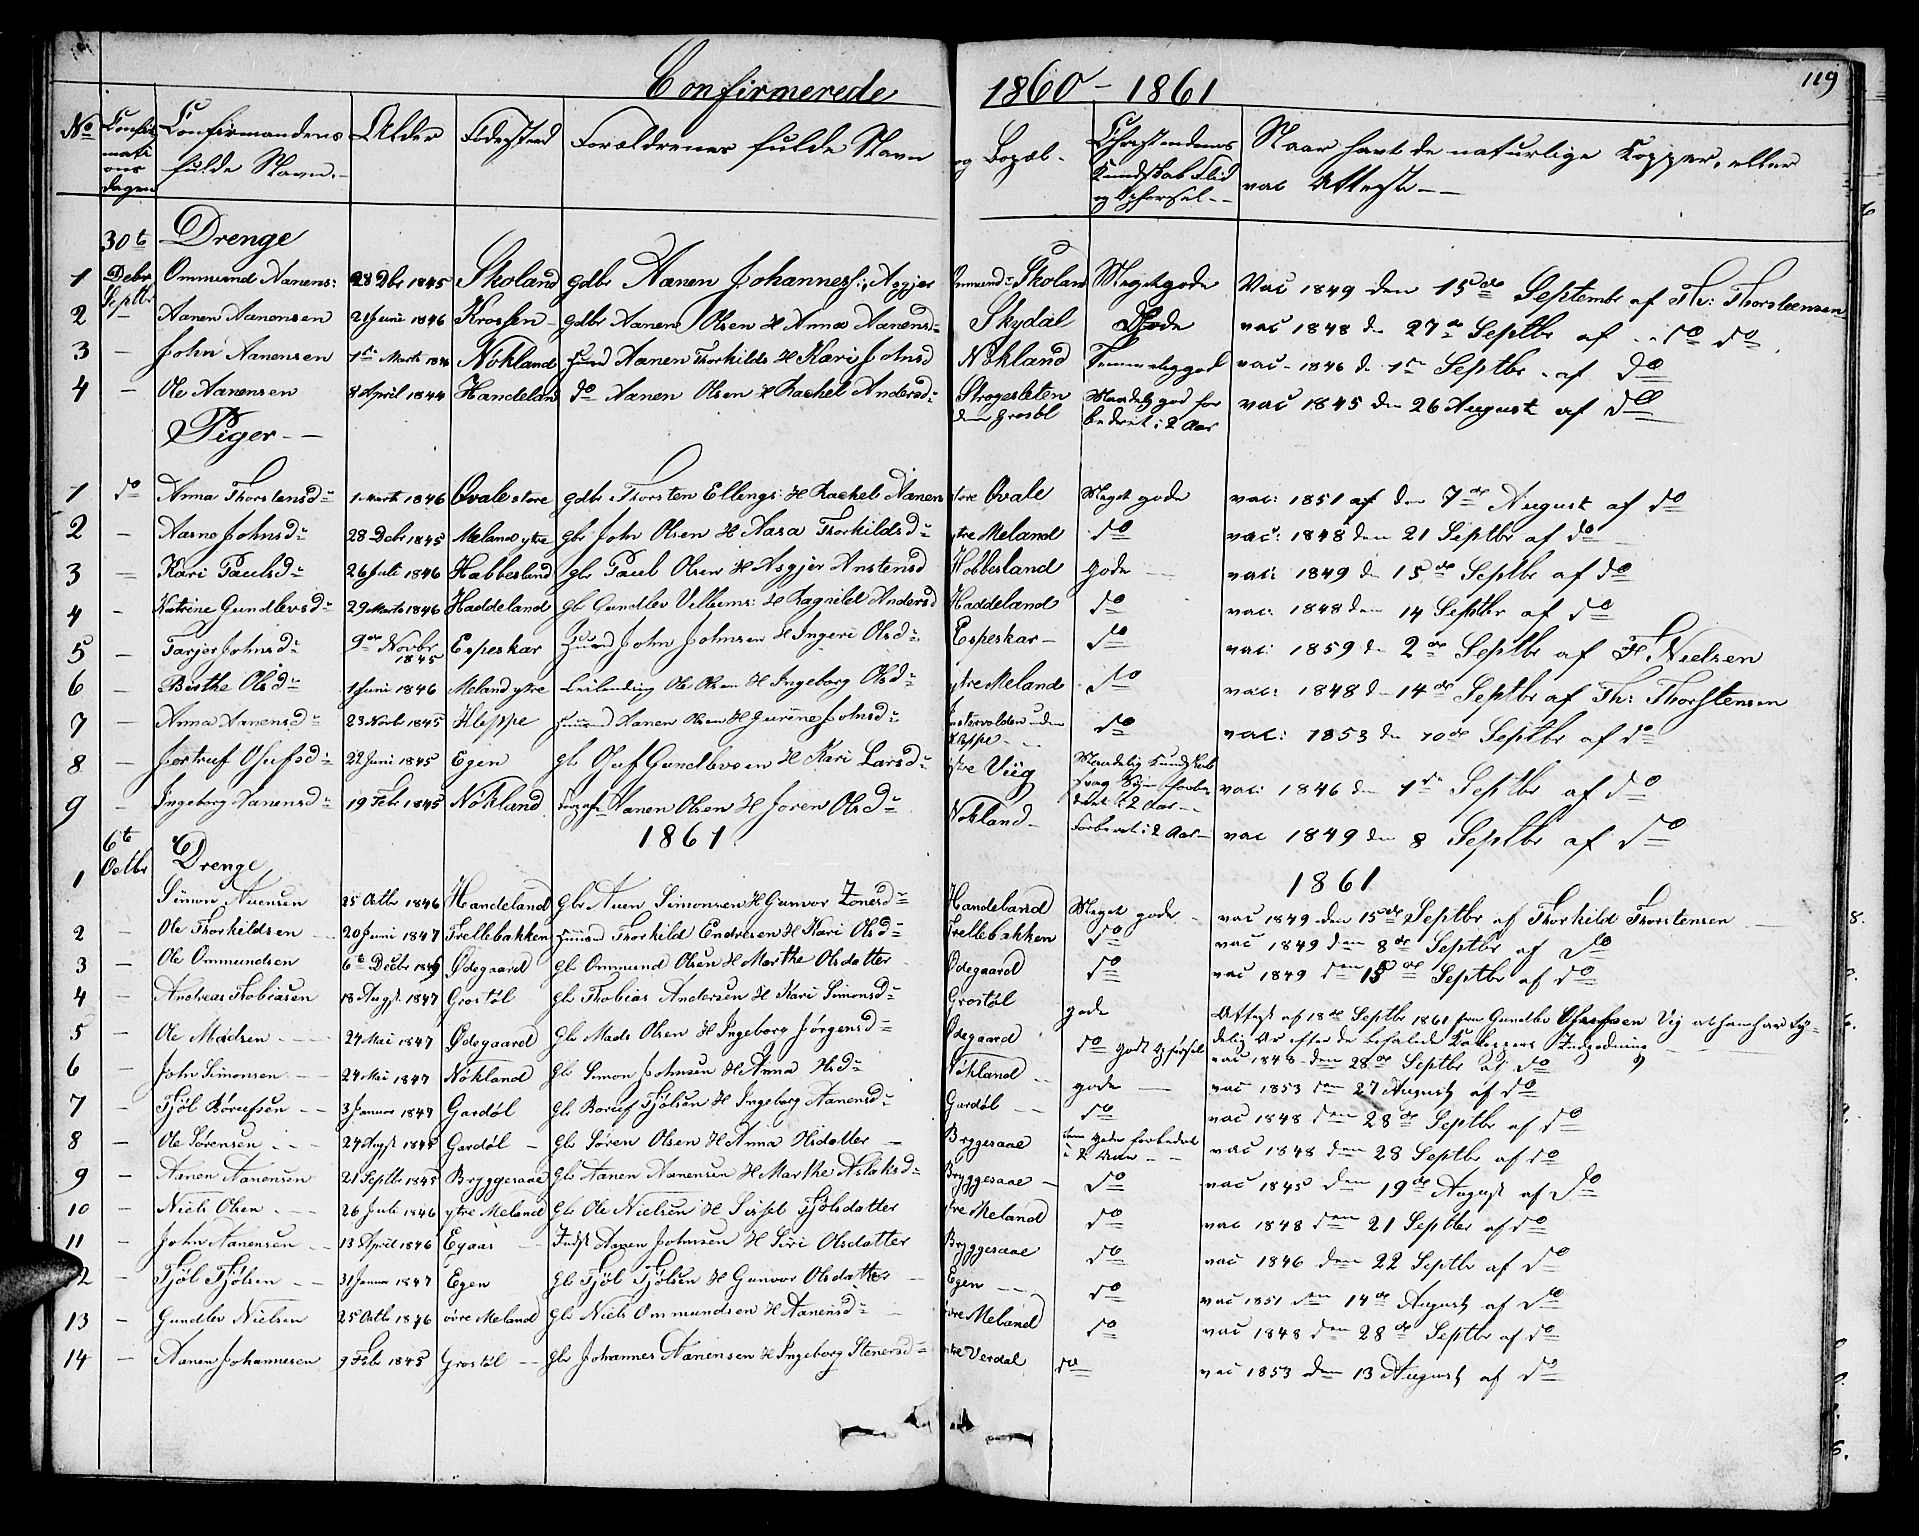 119
Confirmerede 1860 - 1861
No Confirmationsdagen Confirmandens fulde Navn. Alder Fødested Forældrenes fulde Navn og Bopæl. Christendoms Kundskab Flid og Opførsel Naar havt de naturlige Kopper, eller vac Attest
30t Septbr Drenge
1 Ommund Aanens: 28 Dbr 1845 Skoland gdbr Aanen Johannes: Asgjer Ommund: Skoland Meget gode Vac 1849 den 15de Septembr af Th: Thorstensen
2 Aanen Aanensen 21 Juni 1846 Krossen gdbr Aanen Olsen H Anna Aanensd: Skydal Gode vac 1848 d 27de Septbr af do do
3 — John Aanensen 1ste Marts 1846 Nökland Huusmd Aanen Thorkilds H Kari Johnsd Nökland Temmelig god vac 1846 d 1ste Septbr af do
4 — Ole Aanensen 8 April 1844 Handeland do Aanen Olsen H Rachel Andersd: Maadelig god forbedret i 2 Aar vac 1845 den 26 August af do
Piger
1 do Anna Thorstensd: 1 Marts 1846 Øvale store gdbr Thorsten Ellings: H Rachel Aanen store Ovale Meget gode vac: 1851 af den 7de August af do
2 — Aasne Johnsd: 28 Debr 1845 Meland ytre gbr John Olsen H Aasa Thorkildsd: ytre Meland do vac: 1848 den 21 Septbr af do
3 Kari Paulsd: 26 Juli 1846 Habbesland gbr Paul Olsen H Asgjer Anstensd Hobbesland gode vac: 1849 d 15de Septbr af do
4 — Katrine Gundlevsd: 29 Marts 1846 Haddeland gb Gundlev Villums: H Ragnild Andersd Haddeland do vac: 1848 den 14 Septbr af do
5 — Tarjer Johnsd: 9de Novbr 1845 Espeskar Huusmd John Johnsen H Ingeri Olsd: Espeskar do vac: 1859 d 2de Septbr af H Nielsen
6 — Berthe Olsd: 1 Juni 1846 Meland ytre Leilending Ole Olsen H Ingeborg Olsd: ytre Meland do vac: 1848 d 14de Septbr af Th: Thorstensen
7 — Anna Aanensd: 23 Novbr 1845 Kleppe Huusmd Aanen Olsen H Gurine Johnsd: do vac: 1853 den 10de Septbr af do
8 — Jertruf Olufsd: 22 Juni 1845 Egen gb Oluf Gundlevsen H Kari Larsd: ytre Viig Maadelig Kundskab svag Syn forbedret i 2 Aar vac: 1846 den 1ste Septbr af do
9 — Ingeborg Aanensd: 19 Febr 1845 Nökland Aanen Olsen H Joren Olsd: Nökland Forberet i 2 Aar vac 1849 den 8 Septbr af do
1861 1861
6t Octbr Drenge
1 Simon Auensen 25 Octbr 1846 Handeland gbr Auen Simonsen H Gunvor Zonesd: Handeland Meget gode vac 1849 den 15de Septbr af Thorkild Thorstensen
2 — Ole Thorkildsen 20 Juni 1847 Trellebakken Huusmd Thorkild Endresen H Kari Olsd: Trellebakken do vac 1849 den 8de Septbr af do
3 — Ole Ommundsen 6te Decbr Ødegaard gb Ommund Olsen H Marthe Olsdatter Ødegaard do vac 1849 den 15de Septbr af do
4 — Andreas Thobiasen 18 Augst 1847 Grostøl gb Thobias Andersen H Kari Simonsd: Grostøl gode Attest af 18de Septbr 1861 fra Gundlev Viig at han har
5 — Ole Madsen 24 Mai 1847 Ødegaard gb Mads Olsen H Ingeborg Jörgensd: Ødegaard do godt Opførsel vac 1848 den 28de Septbr af do
6 — John Simonsen 24 Mai 1847 Nökland gb Simon Johnsen H Anna Olsd: Nökland gode vac 1853 den 27 August af do
7 — Fjöl Börufsen 3 Januar 1847 Gardöl gb Böruf Fjölsen H Ingeborg Aanensd: Gardöl do vac 1848 den 28de Septbr af do
8 — Ole Sörensen 24 Augst 1845 Gardöl gb Sören Olsen H Anna Olsdatter Bryggesaae forbedret i 2 Aar vac 1848 den 28 Septbr af do
9 — Aanen Aanensen 21 Septbr 1845 Bryggesaae gb Aanen Aanensen H Marthe Aslaksd: Bryggesaae do vac 1845 den 19de August af do
10 — Niels Olsen 26 Juli 1846 ytre Meland gb Ole Nielsen H Sissel Fjölsdatter ytre Meland do vac 1848 den 21 Septbr af do
11 — John Aanensen 13 April 1846 Egaas Indst Aanen Johnsen H Siri Olsdatter Bryggesaae do vac 1846 den 22 Septbr af do
12 — Fjöl Fjölsen 31 Januar 1847 Egen gb Fjöl Fjölsen H Gunvor Olsdatter Egen do vac 1851 den 14de August af do
13 — Gundlev Nielsen 25 Octbr 1846 övre Meland gb Niels Ommundsen H Aanensd: övre Meland do vac 1848 den 28de Septbr af do
14 — Aanen Johannesen 9 Febr 1845 Grostöl gb Johannes Aanensen H Ingeborg Stenersd: ytre Verdal do vac 1853 den 13 August af do